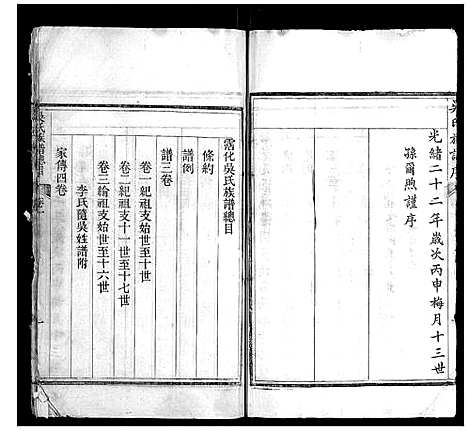 光緒二十二年歲次丙申梅月十三世
孫爾煦謹序
霑化吳氏族譜總目
條約
譜例
譜三卷
卷一紀祖支始世至十世
卷二紀祖支十一世至十七世
卷三綸祖支始世至十六世
李氏隨吳姓譜附
家傳四卷
吳氏族譜總目
卷一
一